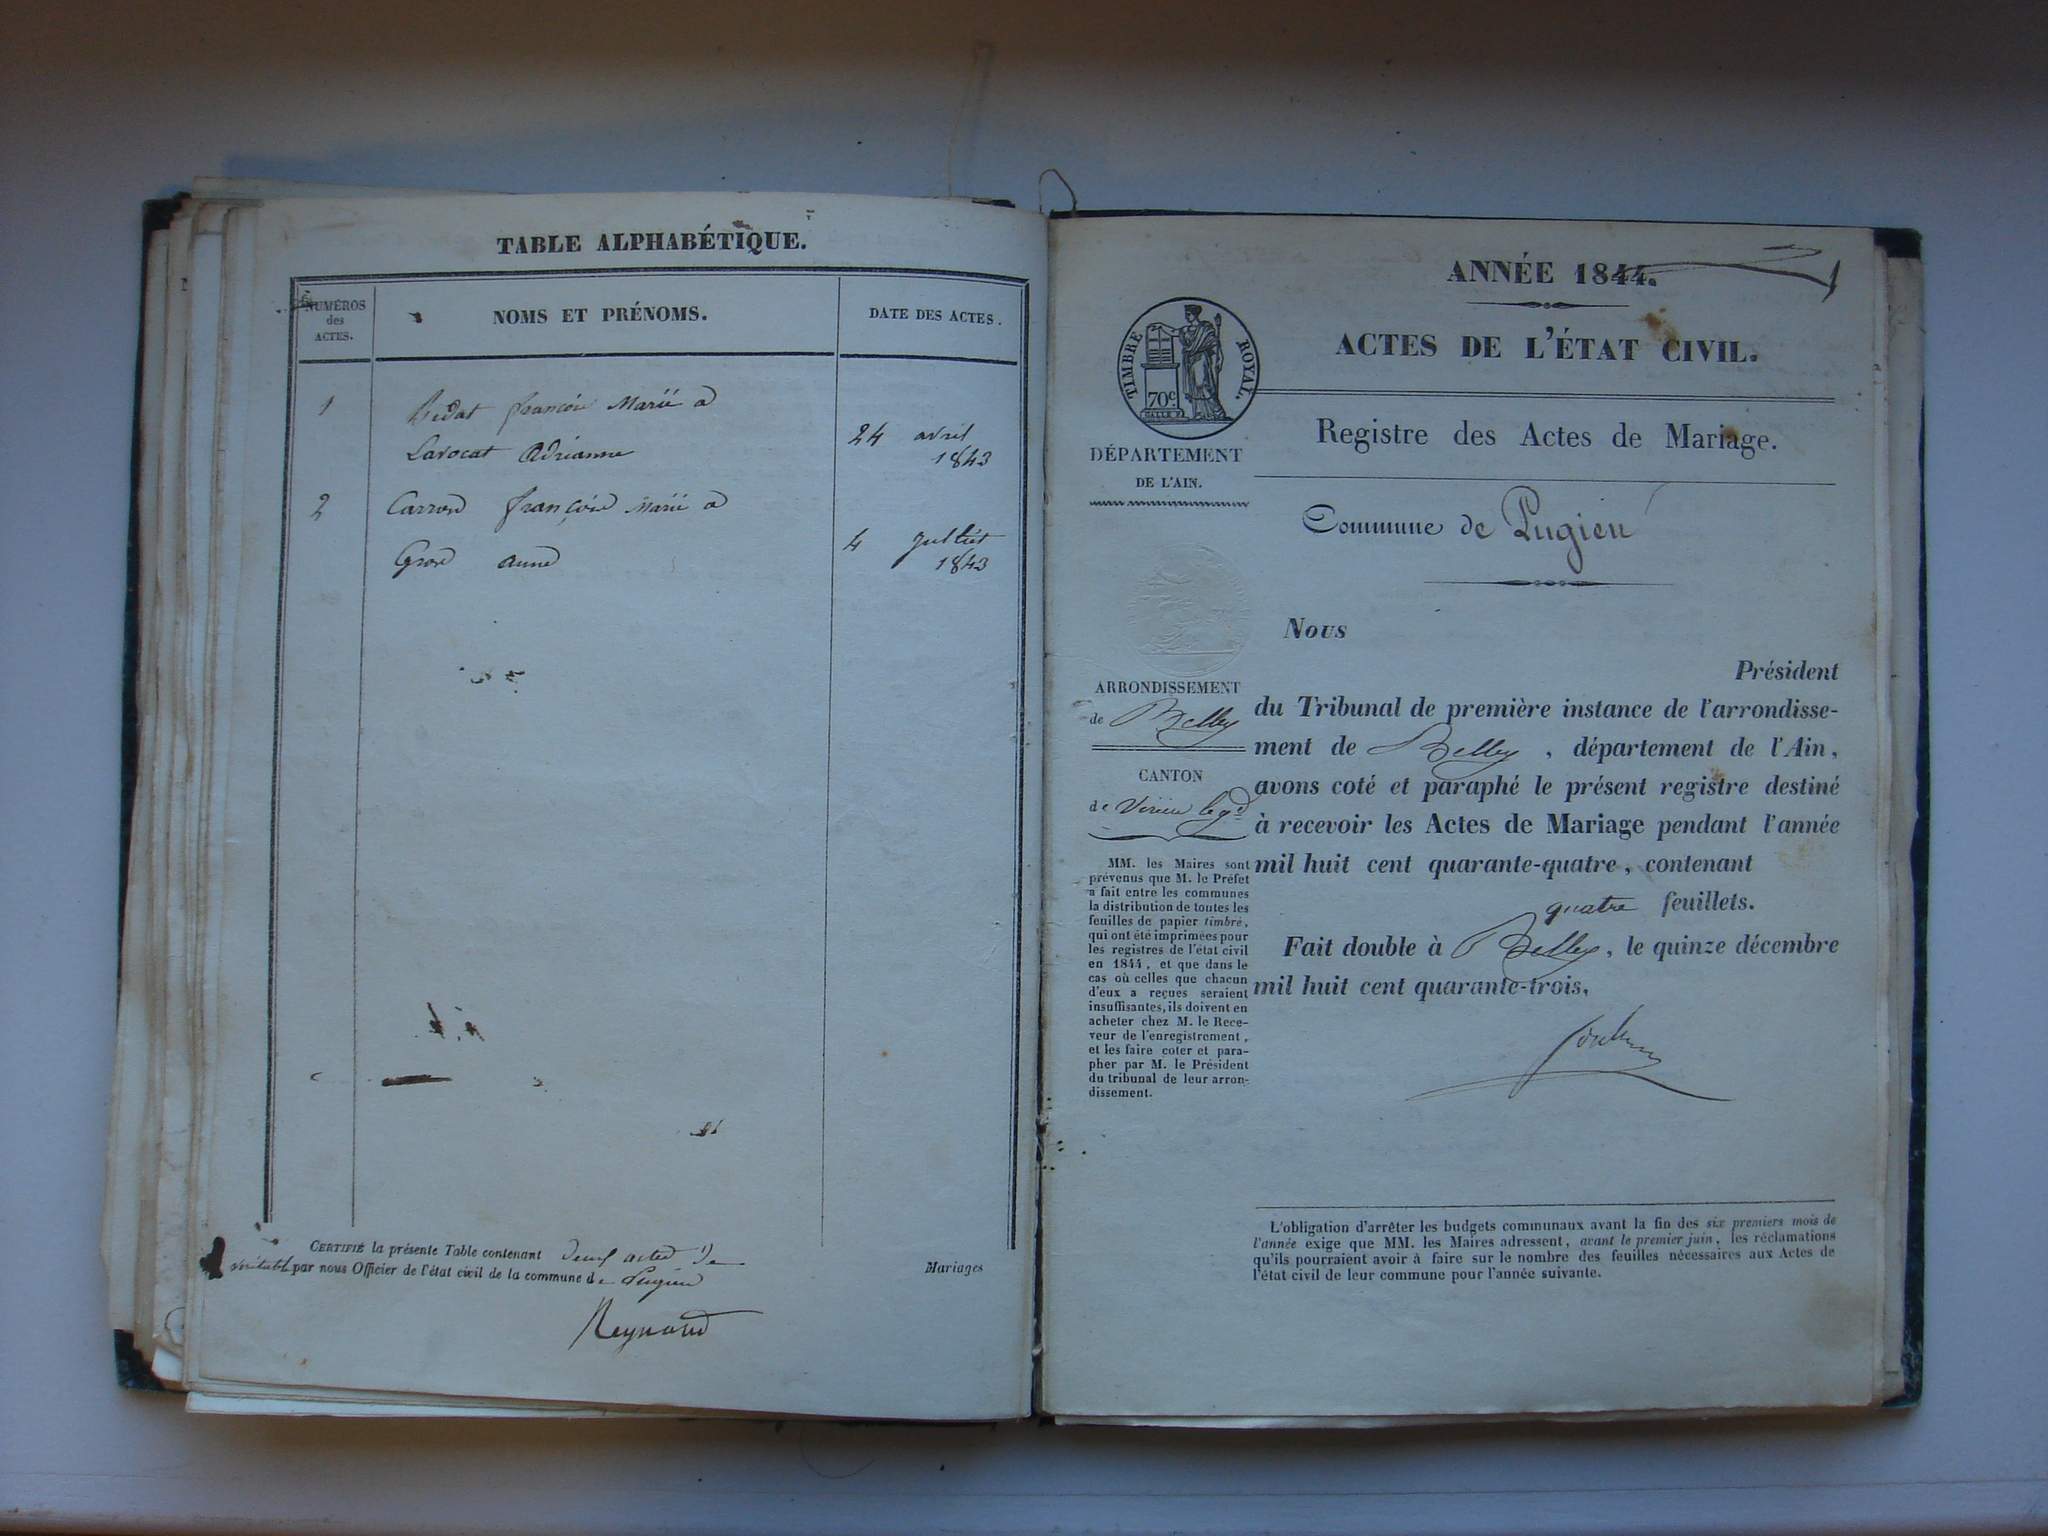 TABLE ALPHABÉTIQUE.
NUMÉROS
des
ACTES.
NOMS ET PRÉNOMS.
DATE DES ACTES.
1
Bidat françois Marié a
Lavocat Adrianne
24 avril
1843
2
Carron françois Marié a
Gros anne
4 juillet
1843
CERTIFIÉ la présente Table contenant deux actes de
Mariages
véritable par nous Officier de l'état civil de la commune de Pugieu
Reynaud
ANNÉE 1844.
1
ACTES DE L'ÉTAT CIVIL.
TIMBRE ROYAL.
70c
Registre des Actes de Mariage.
DÉPARTEMENT
DE L'AIN.
Commune de Pugieu
ARRONDISSEMENT
de Belley
CANTON
de Virieu le gd
MM. les Maires sont
prévenus que M. le Préfet
a fait entre les communes
la distribution de toutes les
feuilles de papier timbré,
qui ont été imprimées pour
les registres de l'état civil
en 1844, et que dans le
cas où celles que chacun
d'eux a reçues seraient
insuffisantes, ils doivent en
acheter chez M. le Rece-
veur de l'enregistrement,
et les faire coter et para-
pher par M. le Président
du tribunal de leur arron-
dissement.
Nous
Président
du Tribunal de première instance de l'arrondisse-
ment de Belley, département de l'Ain,
avons coté et paraphé le présent registre destiné
à recevoir les Actes de Mariage pendant l'année
mil huit cent quarante-quatre, contenant
quatre feuillets.
Fait double à Belley, le quinze décembre
mil huit cent quarante-trois.
L'obligation d'arrêter les budgets communaux avant la fin des six premiers mois de
l'année exige que MM. les Maires adressent, avant le premier juin, les réclamations
qu'ils pourraient avoir à faire sur le nombre des feuilles nécessaires aux Actes de
l'état civil de leur commune pour l'année suivante.